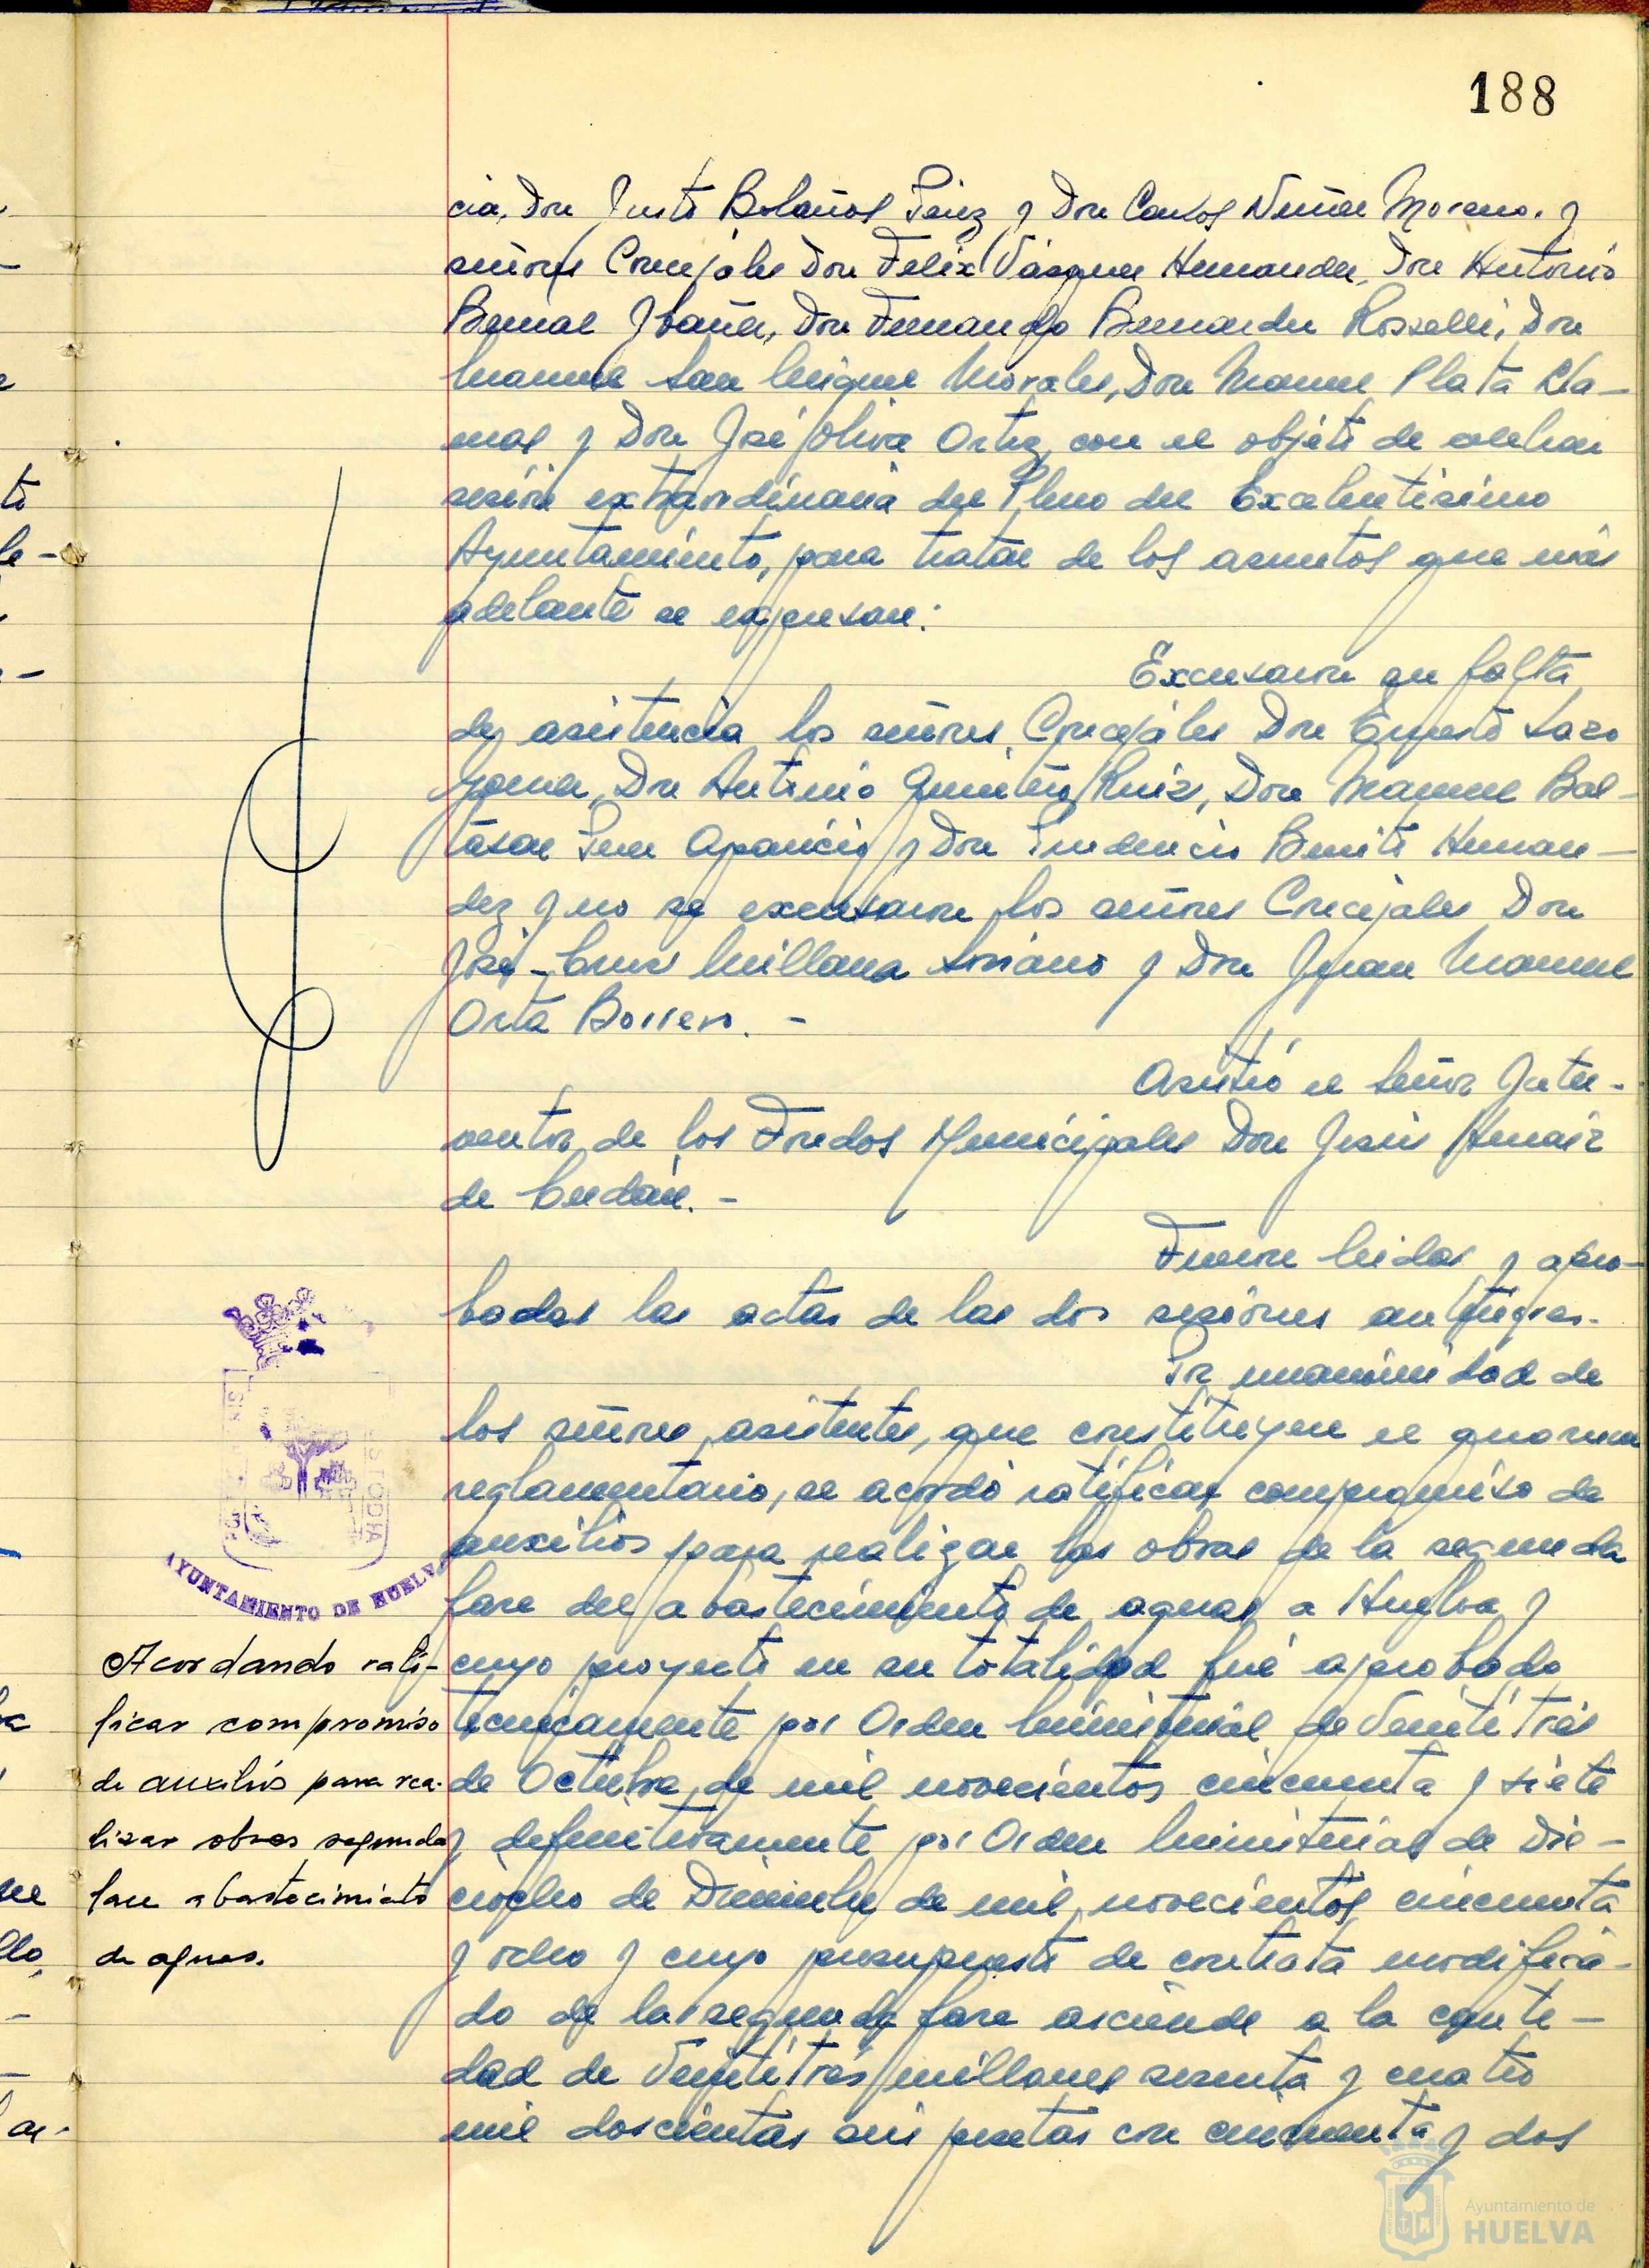 188
cia, Don Justo Bolaños Pérez y Don Carlos Núñez Moreno. y
señores Concejales Don Félix Vázquez Hernández, Don Antonio
Bernal Ibáñez, Don Fernando Bernardez Rosselli, Don
Manuel San Miguel Morales, Don Manuel Plata Lla-
mas y Don José Oliva Ortiz, con el objeto de celebrar
sesión extraordinaria del Pleno del Excelentísimo
Ayuntamiento, para tratar de los asuntos que más
adelante se expresan:
Excusaron su falta
de asistencia los señores Concejales Don Ernesto Lazo
Don Antonio Quintero Ruiz, Don Manuel Bal-
tasar Pérez Aparicio y Don Prudencio Benito Hernán-
dez y no se excusaron los señores Concejales Don
José-Cruz Millana Soriano y Don Juan Manuel
Orta Borrero. -
Asistió el Señor Inter-
ventor de los Fondos Municipales Don Jesús Arnaiz
de
Fueron leidas y apro-
badas las actas de las dos sesiones anteriores.
Por unanimidad de
los señores asistentes, que constituyen el quorum
reglamentario, se acordó ratificar compromiso de
auxilios para realizar las obras de la segunda
fase del abastecimiento de aguas a Huelva y
cuyo proyecto en su totalidad fué aprobado
técnicamente por Orden Ministerial de Veintitrés
de Octubre de mil novecientos cincuenta y siete
y definitivamente por Orden Ministerial de Die-
ciocho de Diciembre de mil novecientos cincuenta
y ocho y cuyo presupuesto de contrata modifica-
do de la segunda fase asciende a la canti-
dad de Veintitrés millones sesenta y cuatro
mil doscientas seis pesetas con cincuenta y dos
AYUNTAMIENTO DE HUELVA
Acordando rati-
ficar compromiso
de auxilios para rea-
lizar obras segunda
fase abastecimiento
de aguas.
Ayuntamiento de
HUELVA